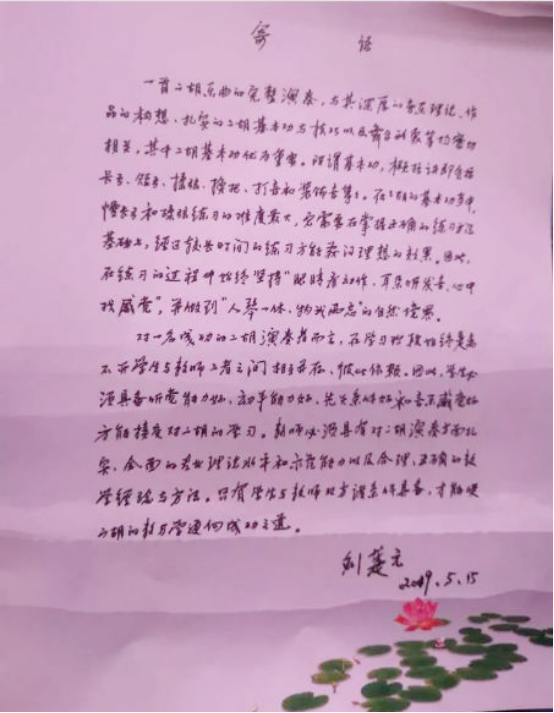 寄 语
一首二胡乐曲的完整演奏，与其深厚的音乐理论、作
品的构想、扎实的二胡基本功与技巧以及舞台形象等均密切
相关，其中二胡基本功优为重要。所谓基本功，概括讲即包括
长弓、短弓、揉弦、换把、打音和装饰音等。在二胡的基本功当中，
慢长弓和揉弦练习的难度最大，它需要在掌握正确的练习方法
基础上，经过较长时间的练习方能获得理想的效果。因此，
在练习的过程中始终坚持“眼睛看动作、耳朵听发音、心中
找感觉”，并做到“人琴一体、物我两忘”的自然境界。
对一名成功的二胡演奏者而言，在学习阶段始终是离
不开学生与教师二者之间相互并存、彼此依赖。因此，学生必
须具备听觉能力好、动手能力好、先天条件好和音乐感觉好
方能接受对二胡的学习。教师必须具有对二胡演奏方面扎
实、全面的专业理论水平和示范能力以及合理、正确的教
学经验与方法。只有学生与教师双方调条件具备，才能使
二胡的教与学通向成功之道。
2019.5.15